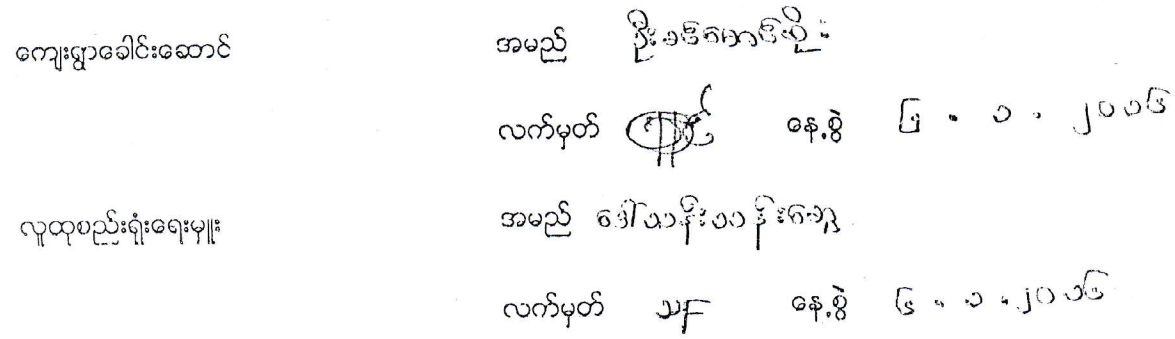 ကျေးရွာခေါင်းဆောင် အမည် ဦးခင်မောင်စိုး
လက်မှတ် နေ့စွဲ ၆.၁.၂၀၁၆
လူထုစည်းရုံးရေးမှူး အမည် ဒေါ်သန်းသန်းဌေး
လက်မှတ် သန နေ့စွဲ ၆.၁.၂၀၁၆